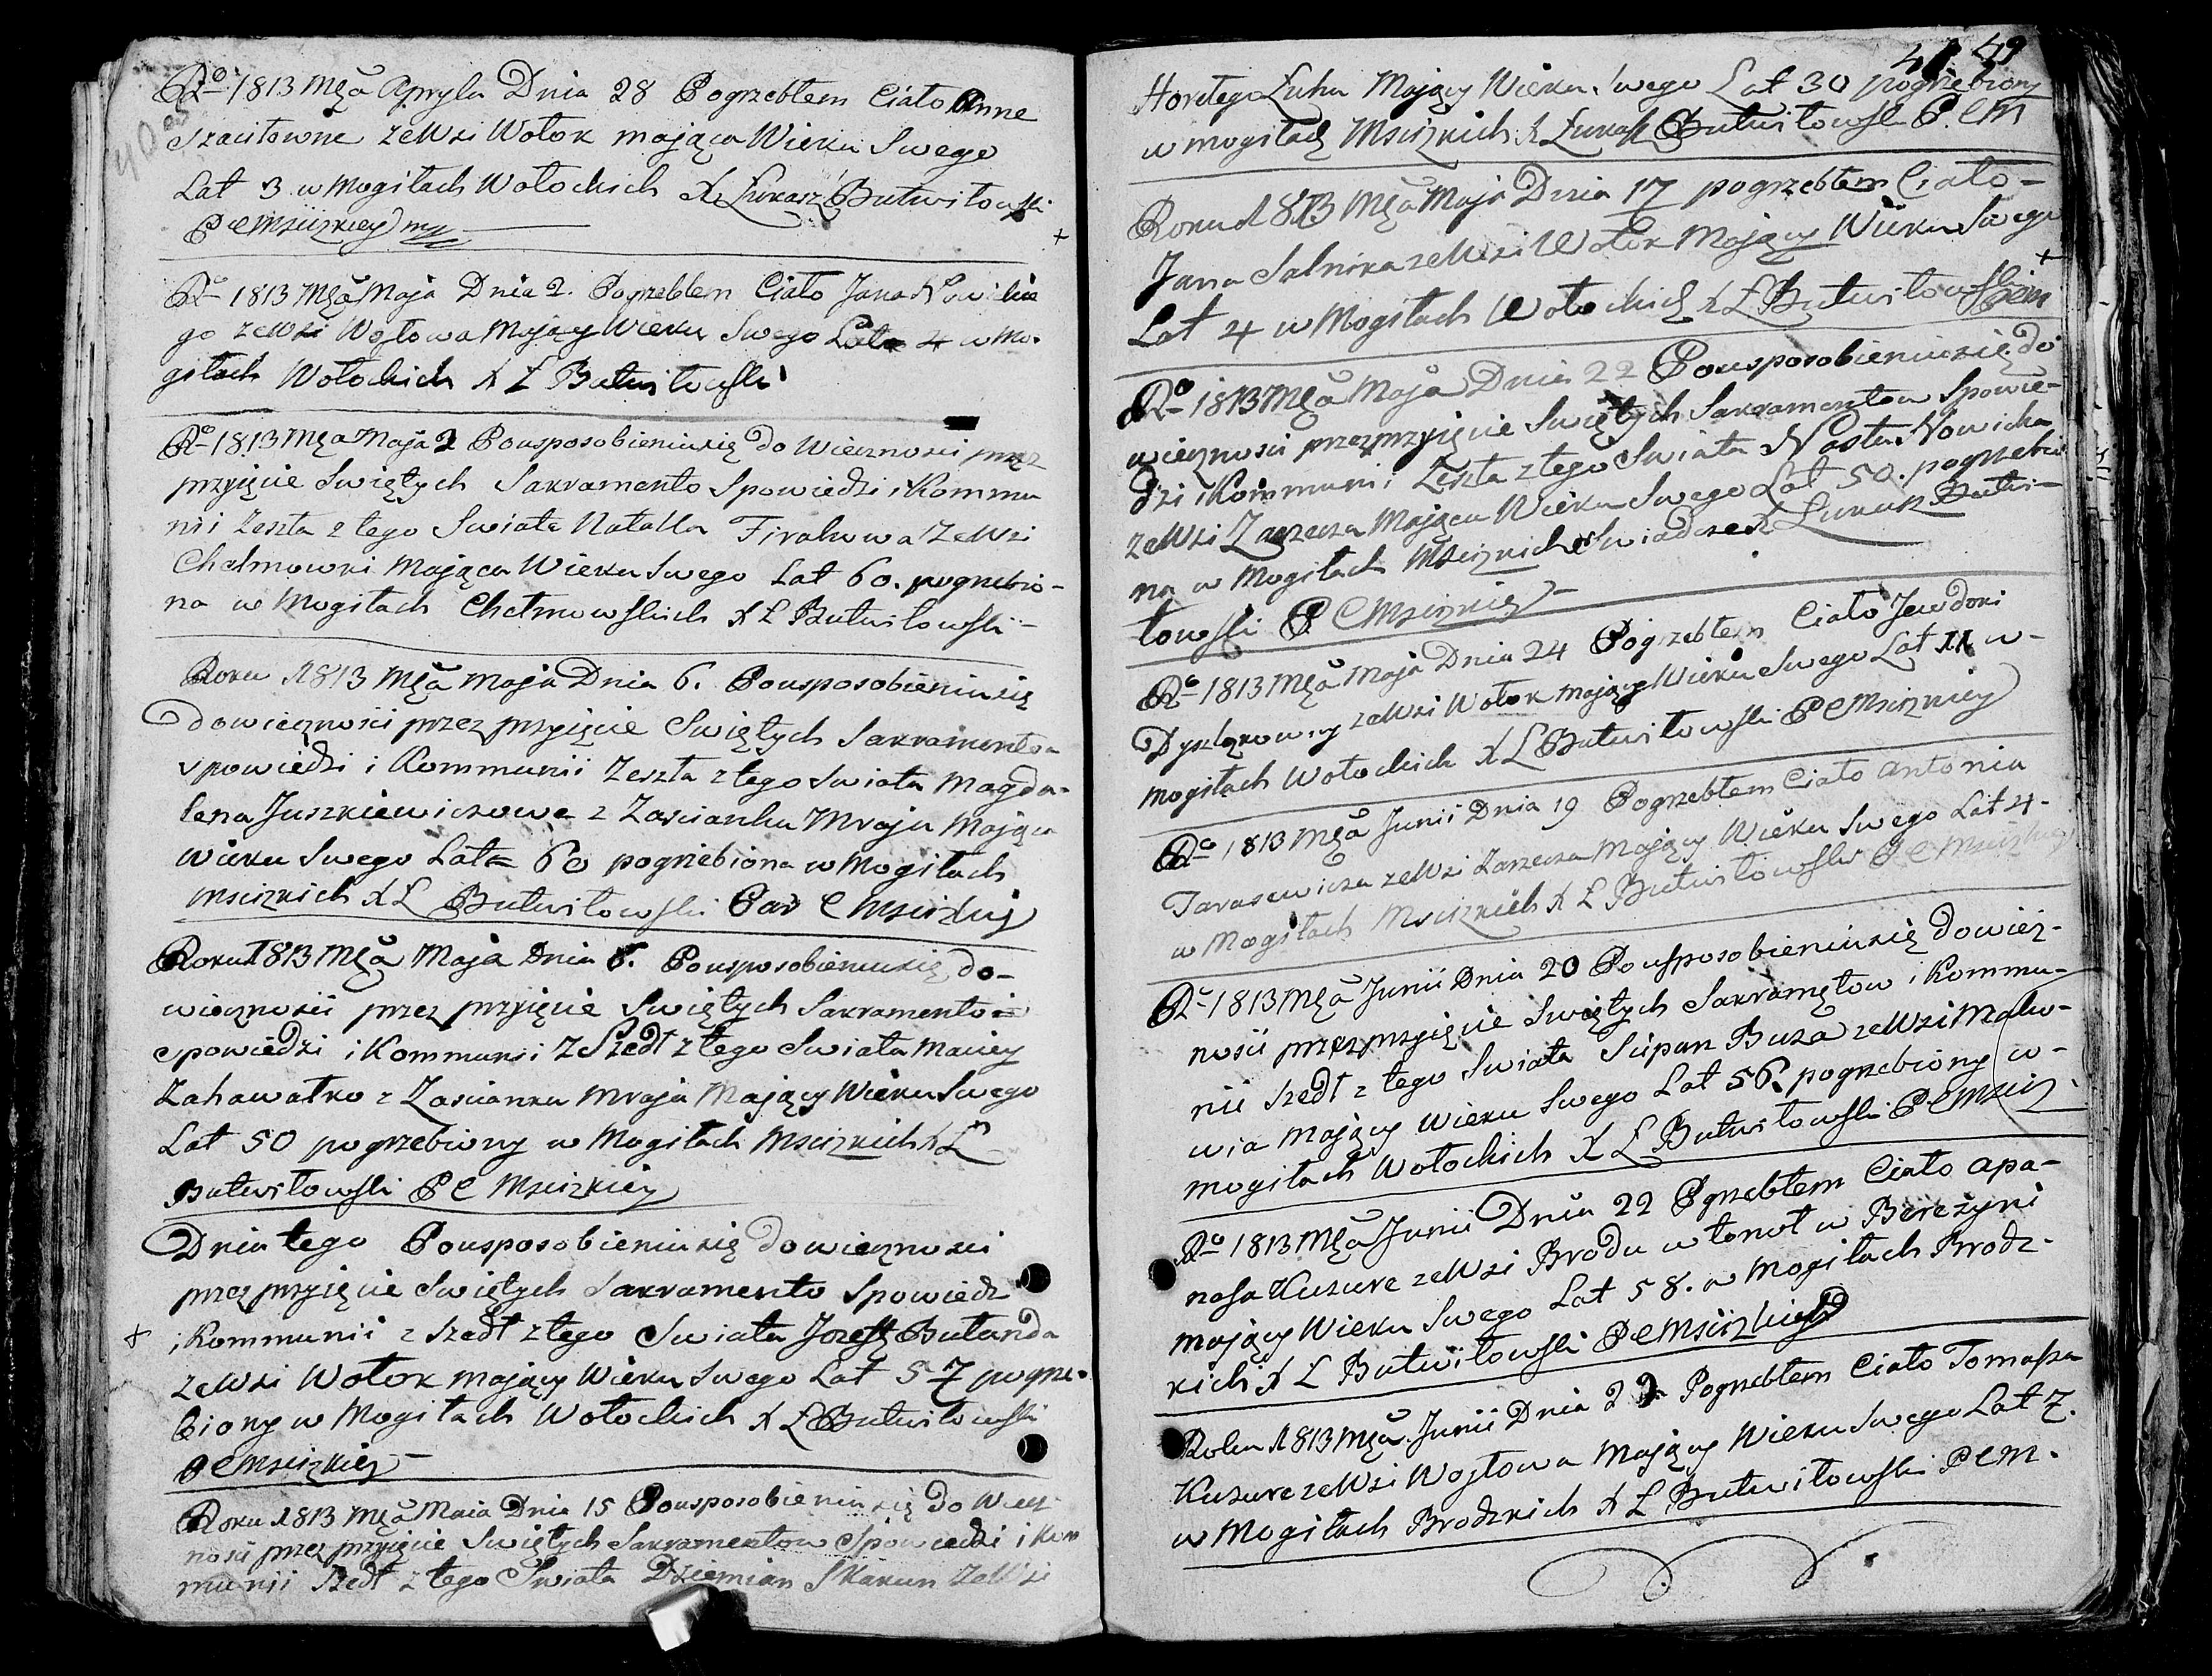 40 об
Rº 1813 Mca Apryla Dnia 28 Pogrzebłem Ciało Anne
Szaciłowne zeWsi Wołok mająca Wieku Swego
Lat 3 w Mogiłach Wołockich X Łukasz Butwiłowski
P C Msciżkiey mp
Rº 1813 Mca Maja Dnia 2. Pogrzebłem Ciało Jana Nowickie
go zeWsi Wojtowa Mający Wieku Swego Lat 4 w Mo-
giłach Wołockich X Ł Butwiłowski
Rº 1813 Mca Maja 2 Pousposobieniusię do Wiecznosci przez
przyięcie Swiętych Sakramento Spowiedzi i Kommu
nii Zeszła z tego Swiata Natalla Firahowa ZeWsi
Chełmowki Mająca Wieku Swego Lat 60. pogrzebio-
na w Mogiłach Chełmowskich X Ł Butwiłowski
Roku 1813 Mca Maja Dnia 6. Pousposobieniusię
do wiecznosci przez przyięcie Swiętych Sakramentow
spowiedzi i Kommunii Zeszła z tego Swiata Magda-
lena Juszkiewiczowa z Zascianku Mraju Mająca
Wieku Swego Lat 60 pogrzebiona w Mogiłach
Msciżkich X Ł Butwiłowski Par C Msciżkiej
Roku 1813 Mca Maja Dnia 6. Pousposobieniusię do-
wiecznosci przez przyięcie Swiętych Sakramentow
spowiedzi i Kommuni Zszedł z tego Swiata Maciey
Zahawałko z Zascianku Mraju Mający Wieku Swego
Lat 50 pogrzebiony w Mogiłach Msciżkich X Ł
Butwiłowski P C Msciżkiey
Dnia tego Pousposobieniusię do wiecznosci
przez przyięcie Swiętych Sakramento Spowiedzi
i Kommunii z szedł z tego Swiata Jozeff Butanda
zeWsi Wołok mający Wieku Swego Lat 57 pogrze-
biony w Mogiłach Wołockich X Ł Butwiłowski
P C Msciżkiey
Roku 1813 Mca Maia Dnia 15 Pousposobieniusię do Wiecz
nosci przez przyięcie Swiętych Sakramentow Spowiedzi i Kom
munii Szedł z tego Swiata Dziemian Skakun zeWsi
41 49
Horełego Łuhu Mający Wieku Swego Lat 30 pogrzebiony
w mogiłach Msciżkich X Łukasz Butwiłowski P. C M
Roku 1813 Mca Maja Dnia 17 pogrzebłem Ciało-
Jana Salnika zeWsi Wołok Mający Wieku Swego
Lat 4 w Mogiłach Wołockich X Ł Butwiłowski P C M
Rº 1813 Mca Maja Dnia 22 Pousposobieniusię do
wiecznosci przez przyięcie Swiętych Sakramentow Spowie-
dzi i Kommuni Zeszła z tego Swiata Nasta Nowicka
zeWsi Zarzecza Mająca Wieku Swego Lat 50. pogrzebio
na w Mogiłach Msciżkich Swiadcze X Łukasz Butwi-
łowski P C Msciżkiey
Rº 1813 Mca Maja Dnia 24 Pogrzebłem Ciało Jewdoki
zeWsi Wołok mający Wieku Swego Lat 11 w-
mogiłach Wołockich X Ł Butwiłowski P C Msciżkiey
Rº 1813 Mca Junii Dnia 19 Pogrzebłem Ciało Antonia
Tarasewicza zeWsi Zarzecza Mający Wieku Swego Lat 4-
w Mogiłach Msciżkich X Ł Butwiłowski P C Msciżkiey
Rº 1813 Mca Junii Dnia 20 Pousposobieniusię dowiecz-
nosci przez przyięcie Swiętych Sakramętow i Kommu-
nii szedł z tego Swiata Scipan Buza zeWsi Malw-
wia Mający Wieku Swego Lat 56 pogrzebiony w-
mogiłach Wołockich X Ł Butwiłowski P. C Msciż
Rº 1813 Mca Junii Dnia 22 Pgrzebłem Ciało Apa-
nasa Kuzure zeWsi Brodu utonoł w Berezyni
mający Wieku Swego Lat 58. w Mogiłach Brodz-
kich X Ł Butwiłowski P C Msciżkiey
Roku 1813 Mca Junii Dnia 22 Pogrzebłem Ciało Tomasza
Kuzure zeWsi Wojtowa Mający Wieku Swego Lat 7.
w Mogiłach Brodzkich X Ł Butwiłowski P C M.